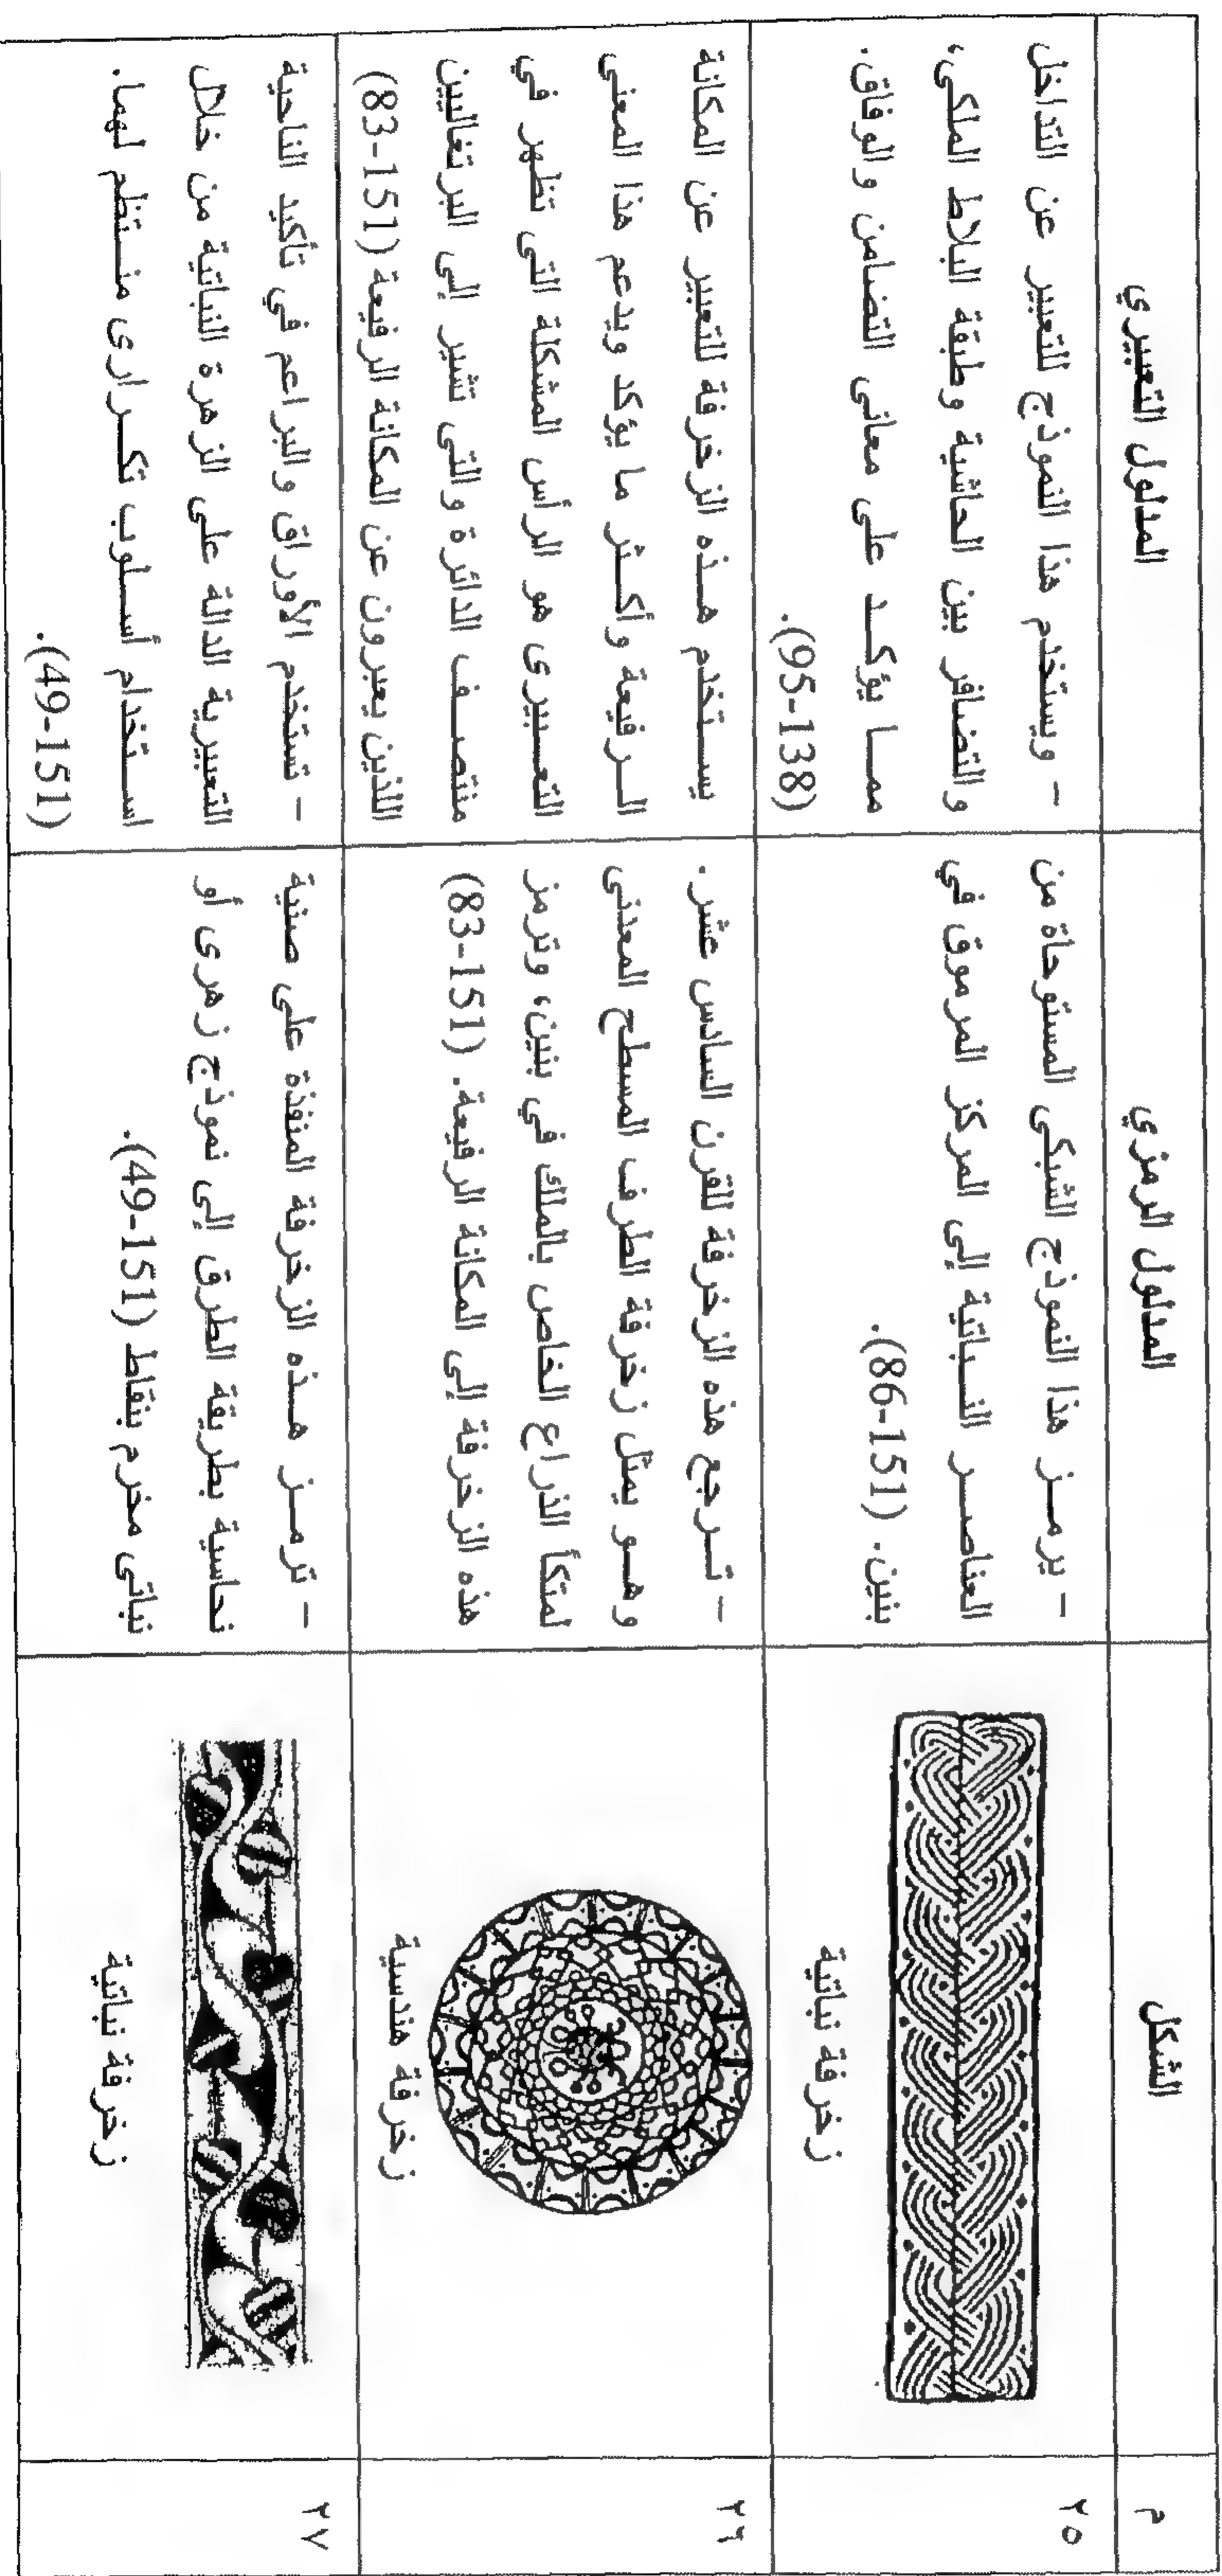 م
الشكل
المدلول الرمزي
المدلول التعبيري
٢٥
زخرفة نباتية
- يرمــز هذا النموذج الشبكى المستوحاة من
العناصــر النــباتية إلى المركز المرموق في
بنين. (86-151).
- ويستخدم هذا النموذج للتعبير عن التداخل
والتضافر بين الحاشية وطبقة البلاط الملكى،
ممــا يؤكــد على معانى التضامن والوفاق.
(95-138).
٢٦
زخرفة هندسية
- تــرجع هذه الزخرفة للقرن السادس عشر.
وهــو يمثل زخرفة الطرف المسطح المعدنى
لمتكأ الذراع الخاص بالملك في بنين، وترمز
هذه الزخرفة إلى المكانة الرفيعة. (83-151)
يســتخدم هــذه الزخرفة للتعبير عن المكانة
الــرفيعة وأكــثر ما يؤكد ويدعم هذا المعنى
التعــبيرى هو الرأس المشكلة التى تظهر في
منتصــف الدائرة والتى تشير إلى البرتغاليين
اللذين يعبرون عن المكانة الرفيعة (83-151)
٢٧
زخرفة نباتية
- ترمــز هــذه الزخرفة المنفذة على صنية
نحاسية بطريقة الطرق إلى نموذج زهرى أو
نباتى مخرم بنقاط (49-151).
- تستخدم الأوراق والبراعم في تأكيد الناحية
التعبيرية الدالة على الزهرة النباتية من خلال
اســتخدام أســلوب تكــرارى منــتظم لهما.
(49-151).